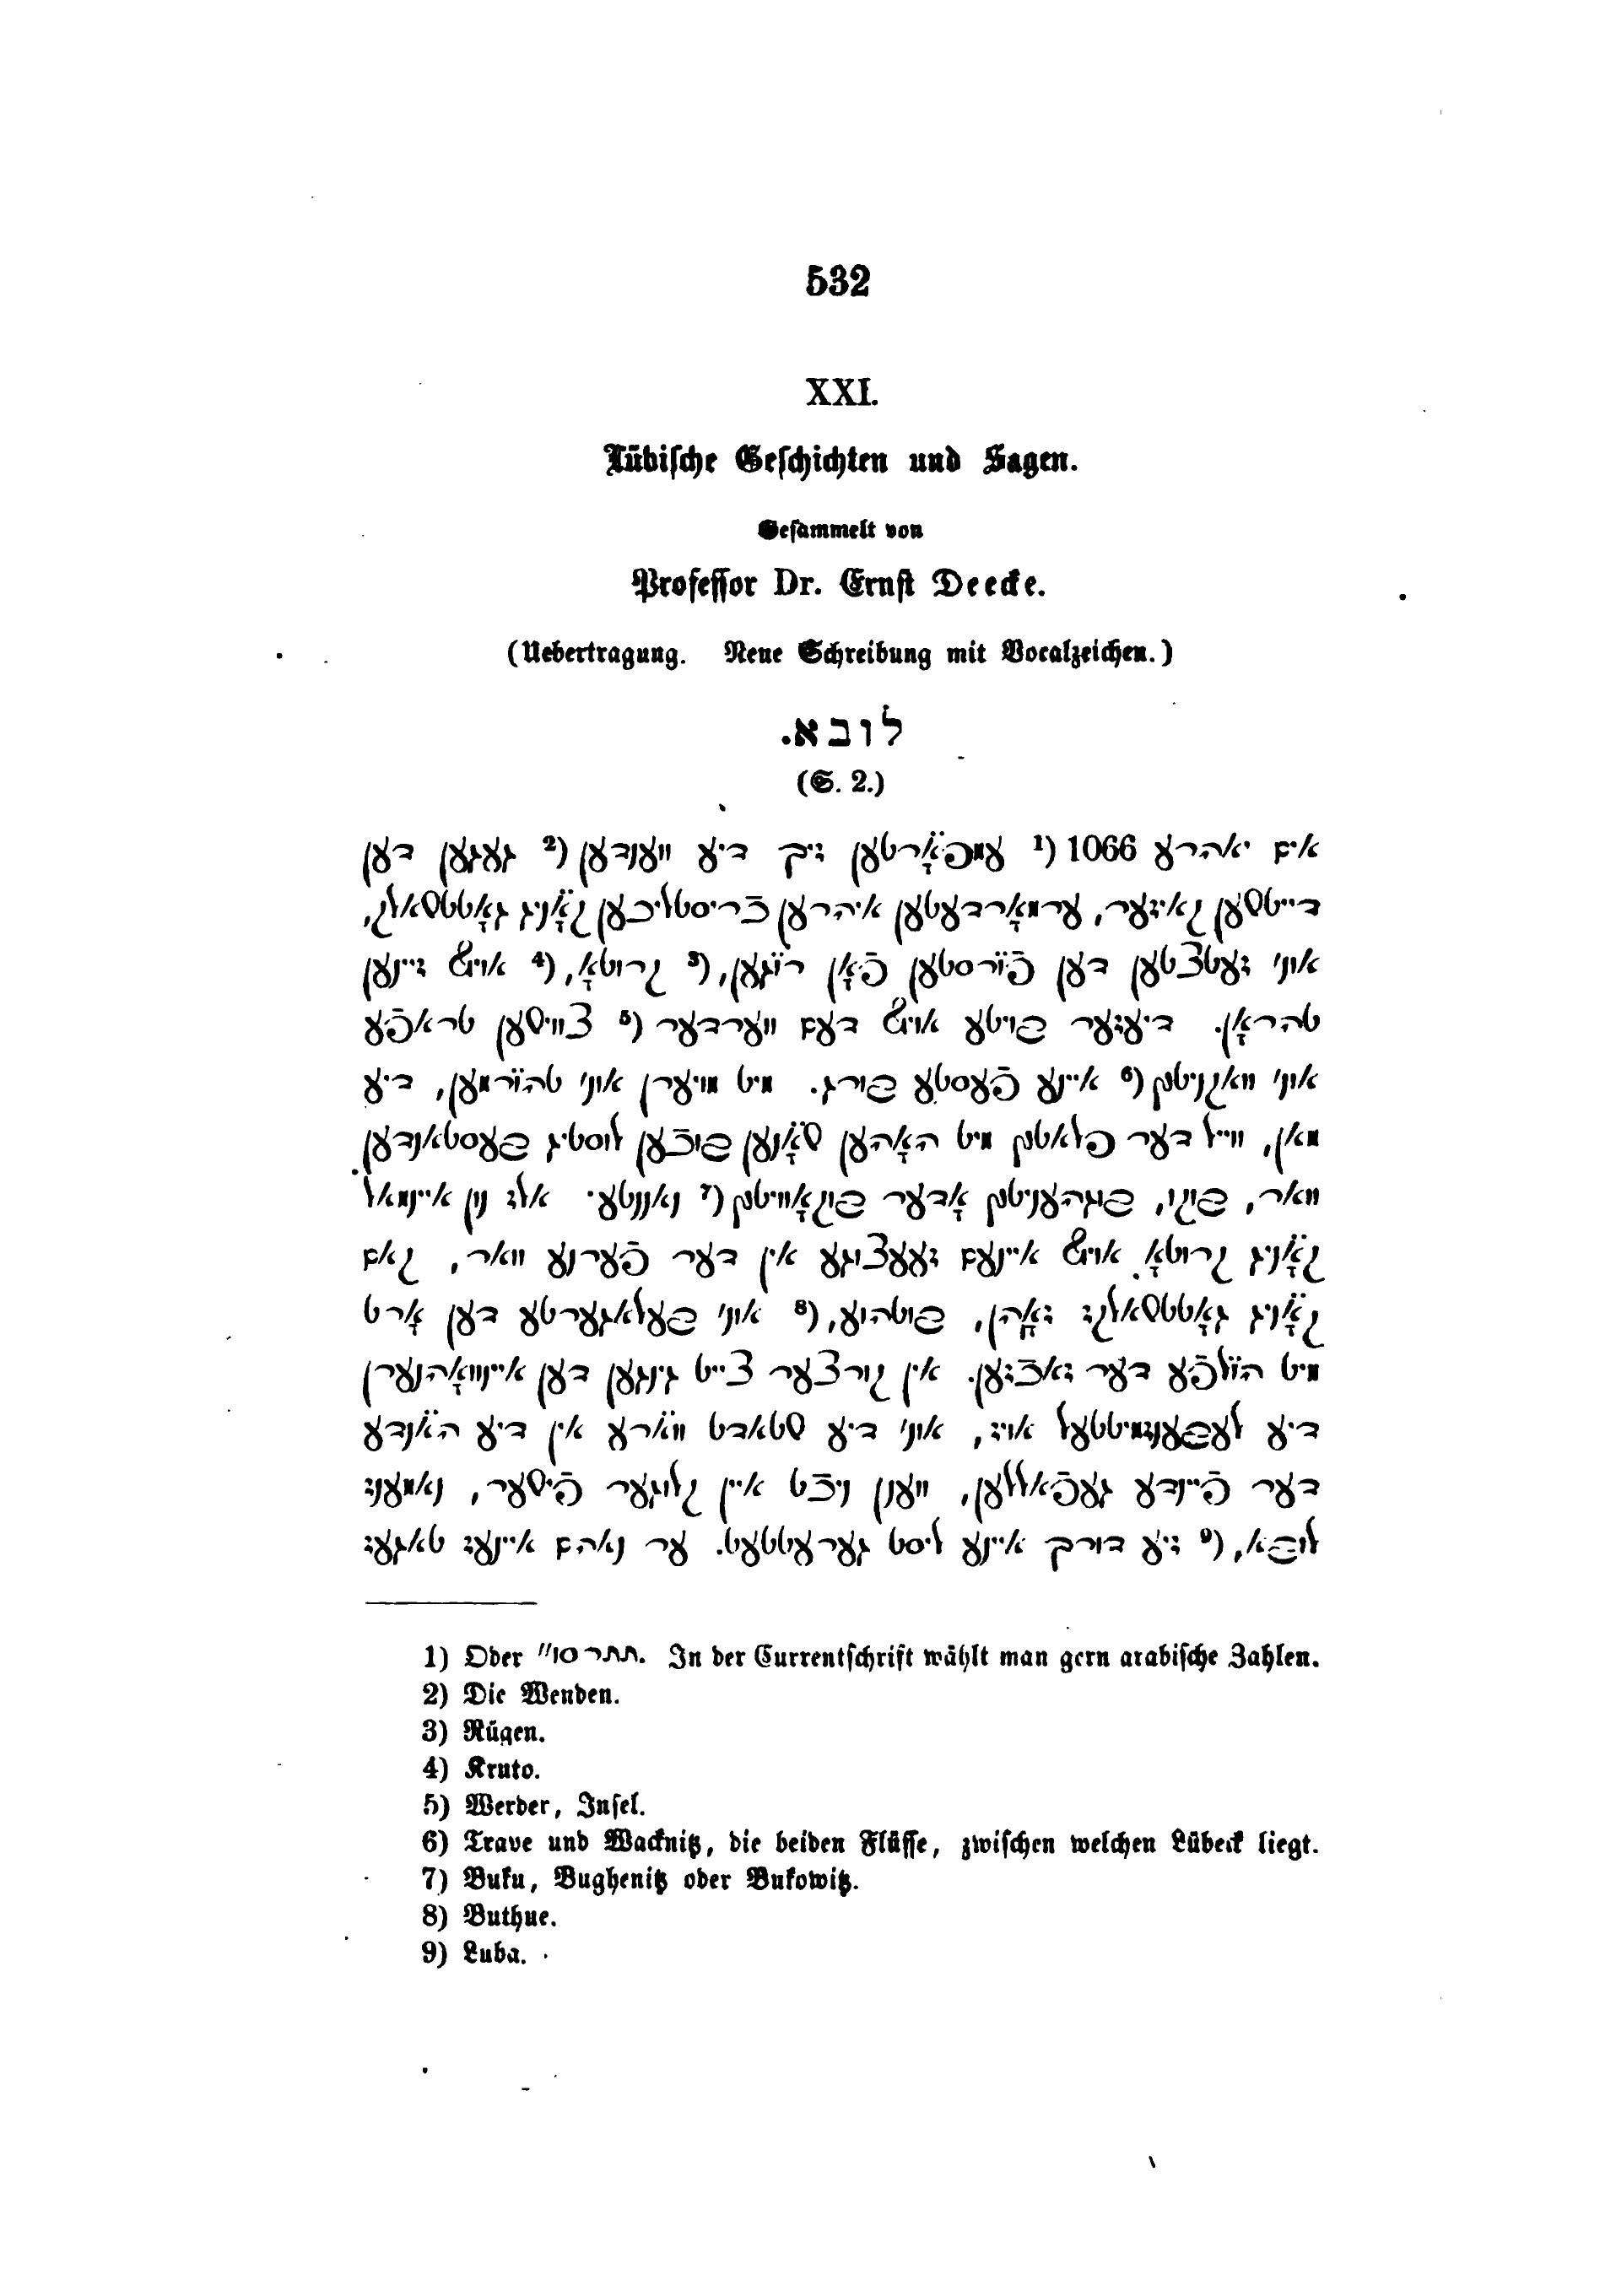 532
XXI.
Lübische Geschichten und Sagen.
Gesammelt von
Professor Dr. Ernst Deecke.
(Uebertragung. Neue Schreibung mit Vocalzeichen.)
לובא.
(S. 2.)
אים יאהרע 1066 (¹ עמפאָ̈רטען זיך דיע ווענדען (² געגען דען
דייטשען קאיזער, ערמאָרדעטען איהרען כֿריסטליכען קאָ̈ניג גאָטטשאלק,
אונ' זעטצטען דען פֿו̈רסטען פֿאָן רו̈גען, (³ קרוטאָ, (⁴ אויף זיינען
טהראָן. דיעזער בויטע אויף דעם ווערדער (⁵ צווישען טראפֿע
אונ' וואקניטץ (⁶ איינע פֿעסטע בורג. מיט מויערן אונ' טהו̈רמען, דיע
מאן, ווייל דער פלאטץ מיט האָהען שאָ̈נען בוכֿען לוסטיג בעסטאנדען
וואר, בוקו, בגהעניטץ אָדער בוקאָוויטץ (⁷ נאננטע. אלז נון איינמאל
קאָ̈ניג קרוטאָ אויף איינעם זעעצוגע אין דער פֿערנע וואר, קאם
קאָ̈ניג גאָטטשאלקז זאָהן, בוטהוע, (⁸ אונ' בעלאגערטע דען אָרט
מיט הו̈לפֿע דער זאכֿזען. אין קורצער צייט גינגען דען איינוואָהנערן
דיע לעבענזמיטטעל אויז, אונ' דיע שטאדט ווא̈רע אין דיע הא̈נדע
דער פֿיינדע געפֿאללען, ווענן ניכֿט איין קלוגער פֿישער, נאמענז
לובא, (⁹ זיע דורך איינע ליסט גערעטטעט. ער נאהם איינעז טאגעז
1) Oder תתרסו״. In der Currentschrift wählt man gern arabische Zahlen.
2) Die Wenden.
3) Rügen.
4) Kruto.
5) Werder, Insel.
6) Trave und Wacknitz, die beiden Flüsse, zwischen welchen Lübeck liegt.
7) Buku, Bughenitz oder Bukowitz.
8) Buthue.
9) Luba.